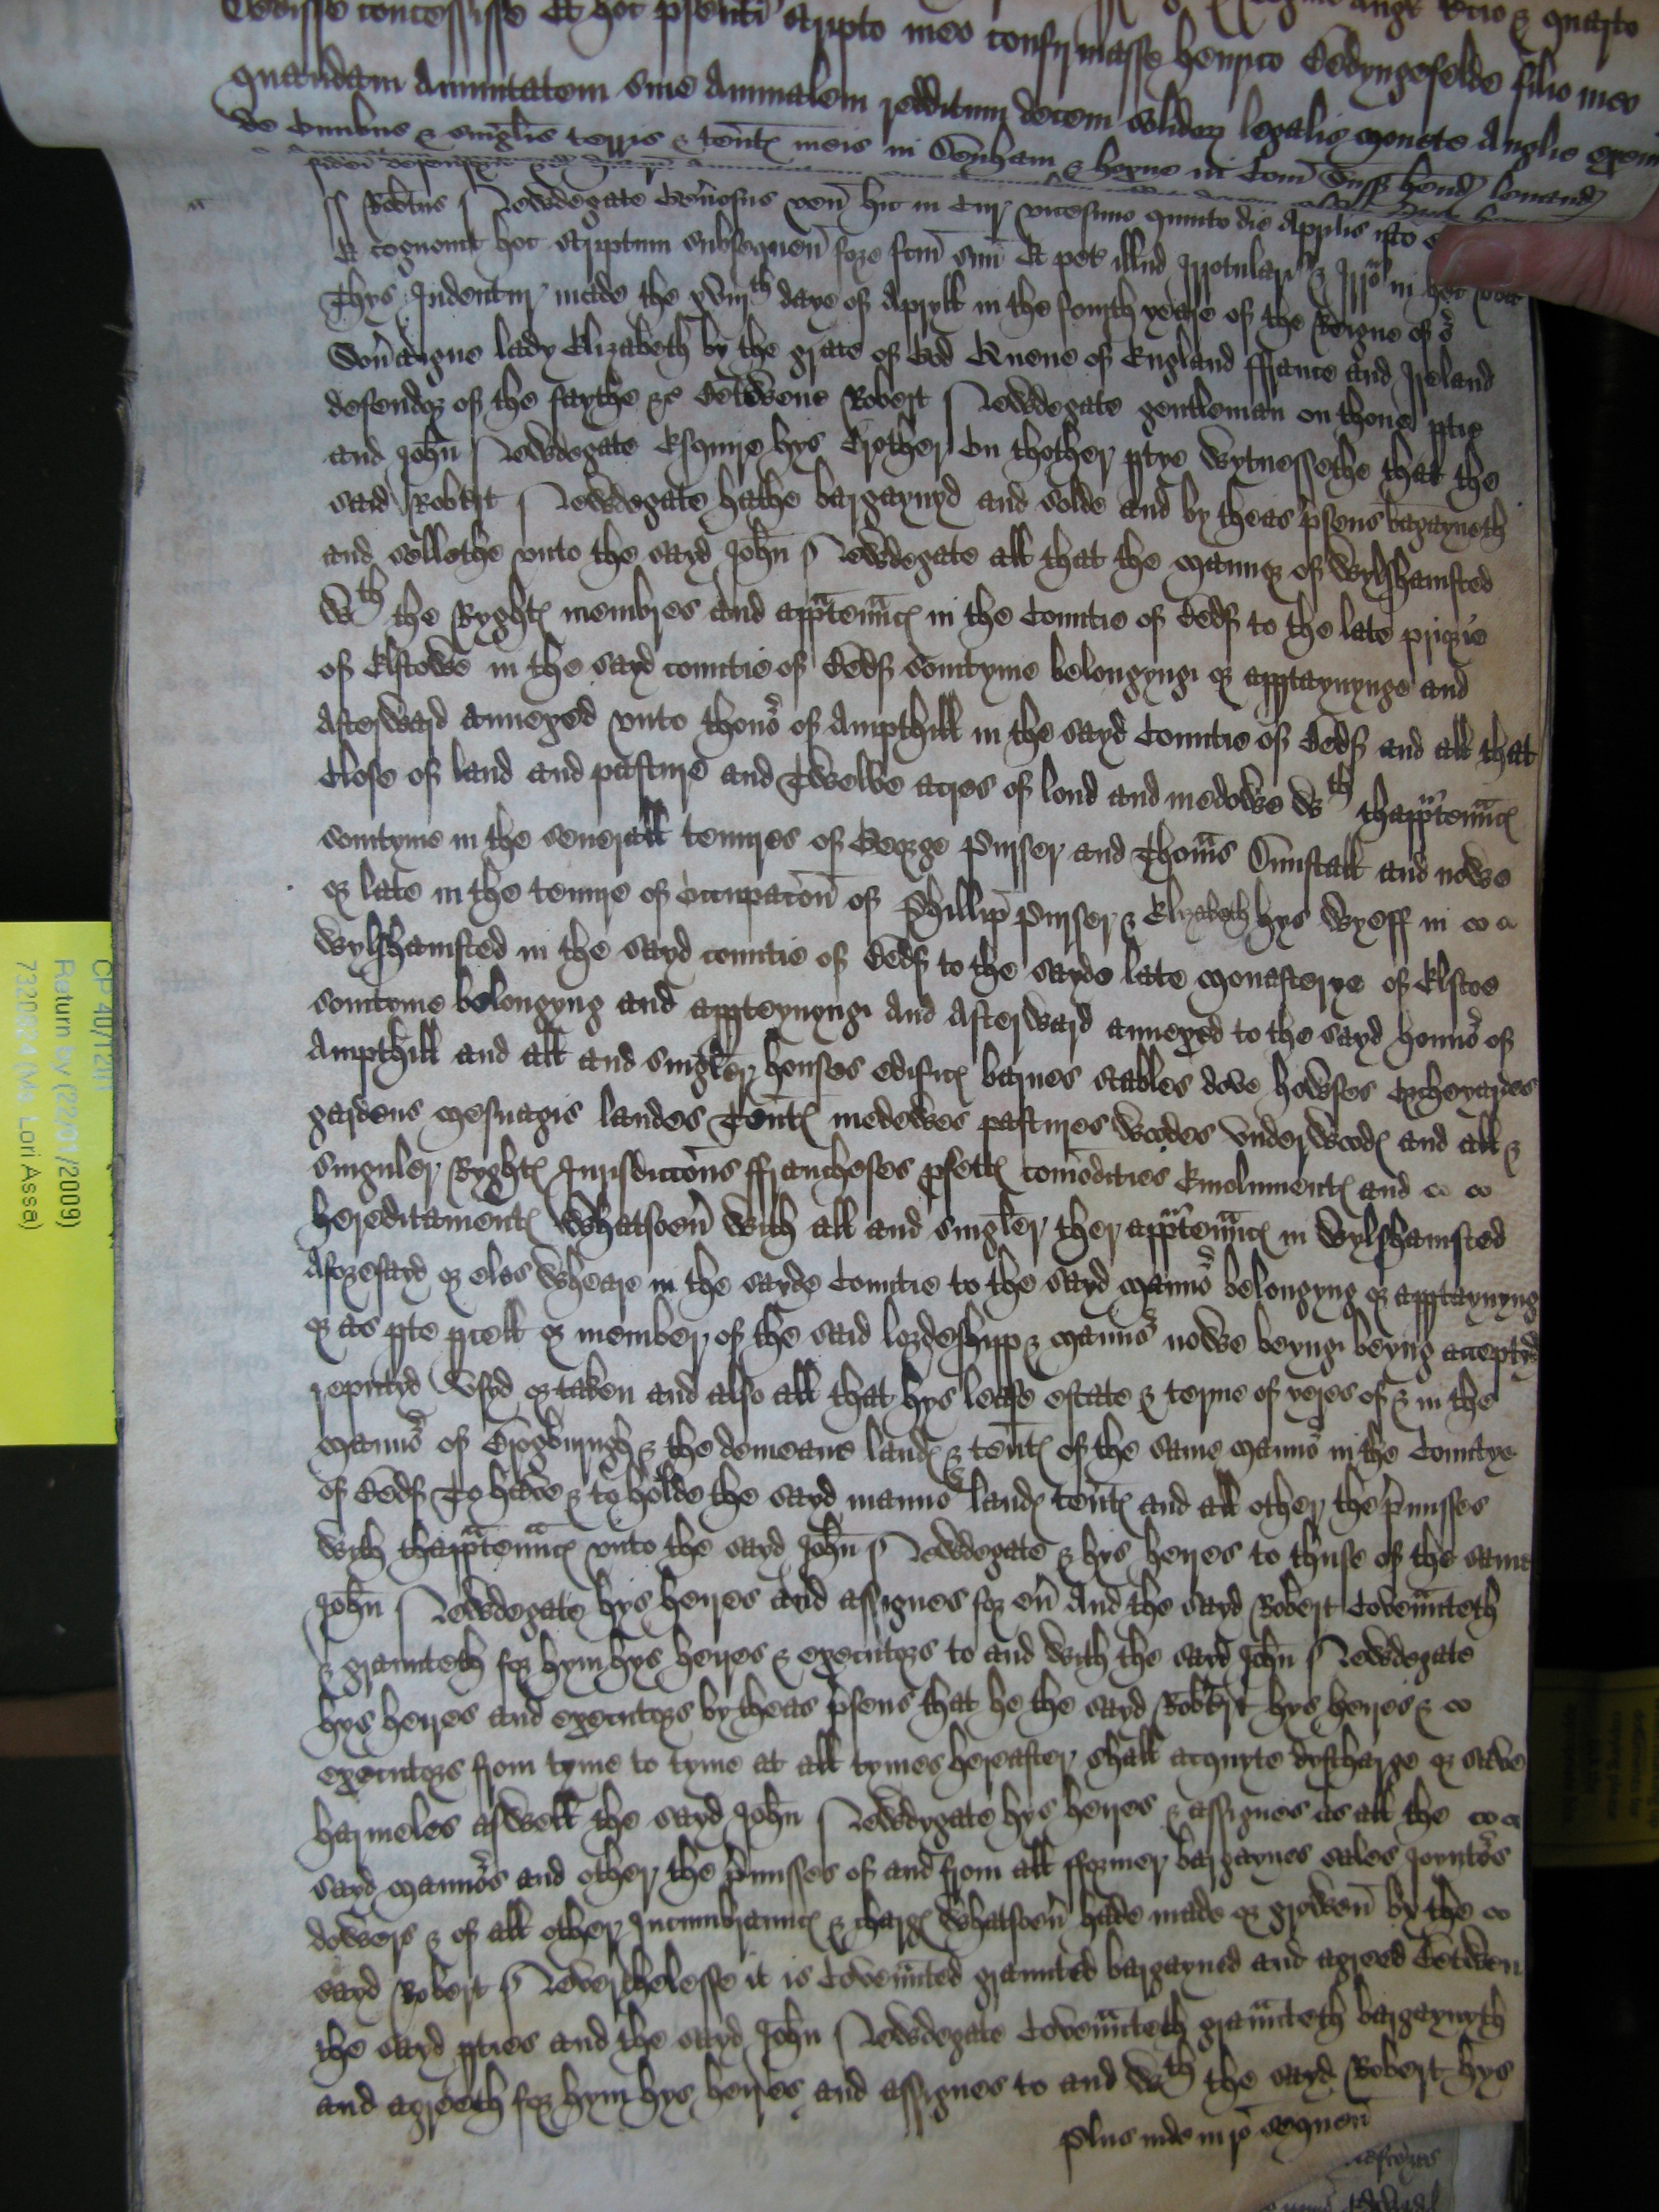 concessisse Et hoc psenti scripto meo confirmasse henrico Bedyngefelde filio meo
quandam Annuitatem sive Annualem redditum decem solidoꝝ legalis monete Anglie
de omnibus & singlis terris & tentꝭ meis in Denham & hoxne in Com Suff hend levand
Robtus Newdegate Genosus ven hic in Cur vicesimo quinto die Aprilis isto
Et cognovit hoc scriptum subsequen fore fcm suu Et pet illud Irrotulari & Irro in hec
Thys Indentur made the xviijth daye of Apryll in the fourth yeare of the Reigne of or
Sovaigne lady Elizabeth by the grace of God Quene of England ffrance and Ireland
defendor of the faythe &c Betwene Robert Newdegate gentleman on thone ptie
and John Newdegate Esquire hys Brother On thother ptye Wytnessethe that the
said Robert Newdegate hathe bargaynyd and solde and by theas psens bagayneth
and sellethe vnto the sayd John Newdegate all that the mannor of Wylshamsted
wth the Ryghtꝭ membres and apptennncꝭ in the Countie of Bedf to the late priorie
of Elstowe in the sayd countie of Bedf somtyme belongyngi or apptaynynge and
Afterward annexed vnto thonor of Ampthill in the sayd Countie of Bedf and all that
Close of land and pasture and Twelve acres of lond and medowe wth thapptennncꝭ
somtyme in the severall tenures of George Pursser and Thoms Dunstall and nowe
or late in the tenure of occupacon of Phillip Pursser & Elizabeth hys wyeff in
Wylshamsted in the sayd countie of Bedf to the sayde late monasterye of Elstoe
somtyme belongyng and appteynyngi And Afterward annexed to the sayd honnor of
Ampthill and all and singler houses edificꝭ barnes stables dove howses Orcheyardes
gardens mesuagis landes Tentꝭ medewes pastures Woodes Underwoodꝭ and all &
singuler Ryghtꝭ Jurisdiccons ffrancheses pfettꝭ comodities Emolumentꝭ and
hereditamentꝭ Whatsoev with all and singler ther apptennncꝭ in Wylshamsted
Aforesayd or eles Wheare in the sayde Countie to the sayd mannor belongyng or apptaynyng
or as pte pcell or member of the said lordeshipp & mannor nowe beyngi beyng acceptyd
reputyd Vsyd or taken and also all that hys lease estate & terme of yeres of & in the
mannor of Brogburugh & the demeane landꝭ & tentꝭ of the same mannor in the Countye
of Bedf To have & to holde the sayd mannor landꝭ tentꝭ and all other the pmisses
with thapptennncꝭ vnto the sayd John Newdegate & hys heires to thuse of the same
John Newdegate hys heires and assignes for ev And the sayd Robert Covennteth
& grannteth for hym hys heires & executors to and with the sayd John Newdegate
hys heires and executors by theas psens that he the sayd Robert hys heires &
executors from tyme to tyme at all tymes hereafter shall acquyte dyscharge or save
harmeles aswell the sayd John Newdygate hys heires & assignes as all the
sayd mannors and other the pmisses of and from all fformer bargaynes sales Joyntors
dowers & of all other Incumbranncꝭ & chargꝭ Whatsoev hade made or growen by the
sayd Robert Neverthelesse it is Covennted grannted bargayned and agreed Betwen
the sayd pties and the sayd John Newdegate Covennteth grannteth bargaynyth
and agreeth for hym hys heires and assignes to and wth the sayd Robert hys
Plus inde in ro sequen
CP 40/1211
Return by (22/01/2009)
7320624 (Ms Lori Assa)